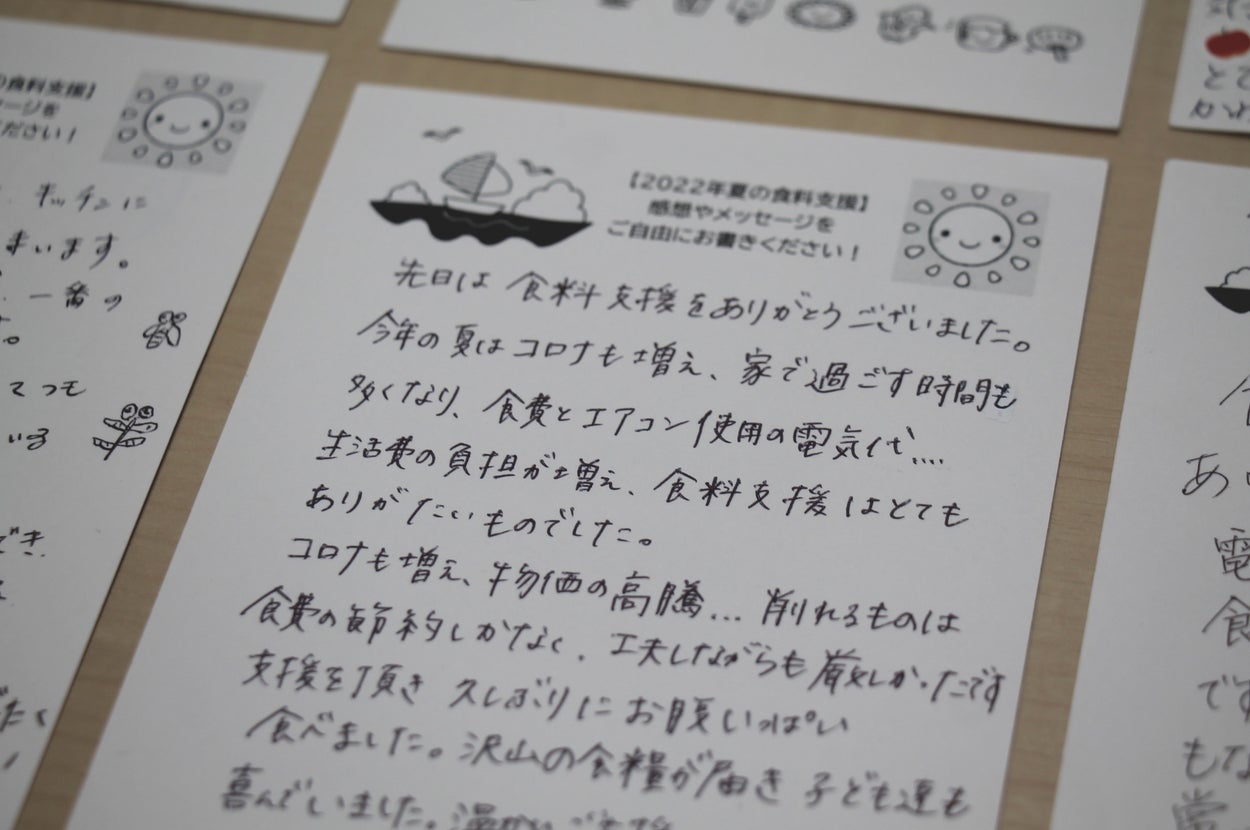 の食料支援】
ージを
ださい！
キッチンに
まいます。
一番の
てつも
いる
でき
たく
【2022年夏の食料支援】
感想やメッセージを
ご自由にお書きください！
先日は食料支援をありがとうございました。
今年の夏はコロナも増え、家で過ごす時間も
多くなり、食費とエアコン使用の電気代....
生活費の負担が増え、食料支援はとても
ありがたいものでした。
コロナも増え、物価の高騰...削れるものは
食費の節約しかなく、工夫しながらも厳しかったです
支援を頂き久しぶりにお腹いっぱい
食べました。沢山の食糧が届き子ども達も
喜んでいました。温かいご支援
とて
かわ
あ
電
食
です
もな